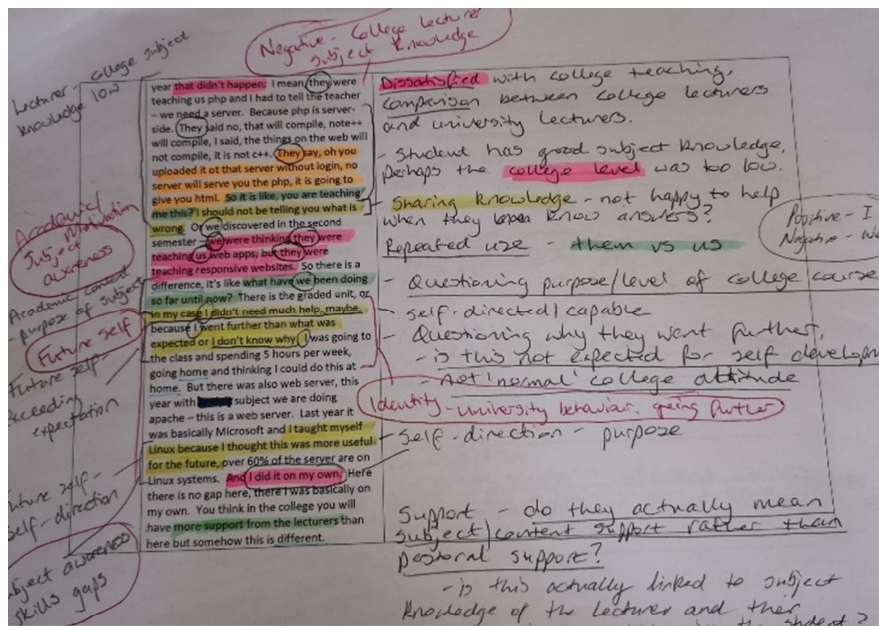 Negative - College lecturer
subject knowledge
Lecturer - college subject
knowledge low
Academic
Subject Motivation
awareness
Academic content
- purpose of subject
Future self
Future self -
exceeding
expectation
Future self -
self-direction
Subject awareness
skills gaps
year that didn't happen. I mean they were
teaching us php and I had to tell the teacher
– we need a server. Because php is server-
side. They said no, that will compile, note++
will compile, I said, the things on the web will
not compile, it is not c++. They say, oh you
uploaded it ot that server without login, no
server will serve you the php, it is going to
give you html. So it is like, you are teaching
me this? I should not be telling you what is
wrong. Or we discovered in the second
semester – we were thinking they were
teaching us web apps, but they were
teaching responsive websites. So there is a
difference, it's like what have we been doing
so far until now? There is the graded unit, or
in my case I didn't need much help, maybe,
because I went further than what was
expected or I don't know why. I was going to
the class and spending 5 hours per week,
going home and thinking I could do this at
home. But there was also web server, this
year with subject we are doing
apache – this is a web server. Last year it
was basically Microsoft and I taught myself
Linux because I thought this was more useful
for the future, over 60% of the server are on
Linux systems. And I did it on my own. Here
there is no gap here, there I was basically on
my own. You think in the college you will
have more support from the lecturers than
here but somehow this is different.
Dissatisfied with college teaching,
comparison between college lecturers
and university lecturers.
- Student has good subject knowledge,
perhaps the college level was too low.
- Sharing knowledge - not happy to help
when they know answers?
Repeated use - them vs us
Positive - I
Negative - We
- Questioning purpose/level of college course
- self-directed/capable
- Questioning why they went further,
- is this not expected for self develop
- Not 'normal' college attitude
Identity - university behaviour, going further
- self-direction - purpose
Support - do they actually mean
subject/content support rather than
pastoral support?
- is this actually linked to subject
knowledge of the lecturer and their
the student?